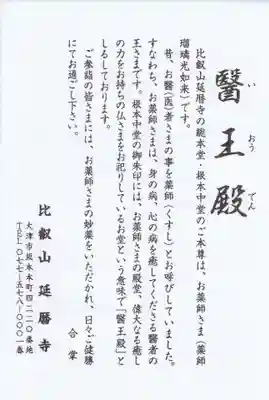 醫王殿
い
おう
でん
比叡山延暦寺の総本堂・根本中堂のご本尊は、お薬師さま(薬師
瑠璃光如来)です。
昔、お醫(医)者さまの事を薬師(くすし)とお呼びしていました。
すなわち、お薬師さまは、身の病、心の病を癒してくださる醫者の
王さまです。根本中堂の御朱印には、お薬師さまの殿堂、偉大なる癒し
の力をお持ちの仏さまをお祀りしているお堂という意味で「醫王殿」と
しるしております。
ご参詣の皆さまには、お薬師さまの妙薬をいただかれ、日々ご健勝
にてお過ごし下さい。
合掌
比叡山 延暦寺
大津市坂本本町四二二〇番地
TEL〇七七‐五七八‐〇〇〇一番